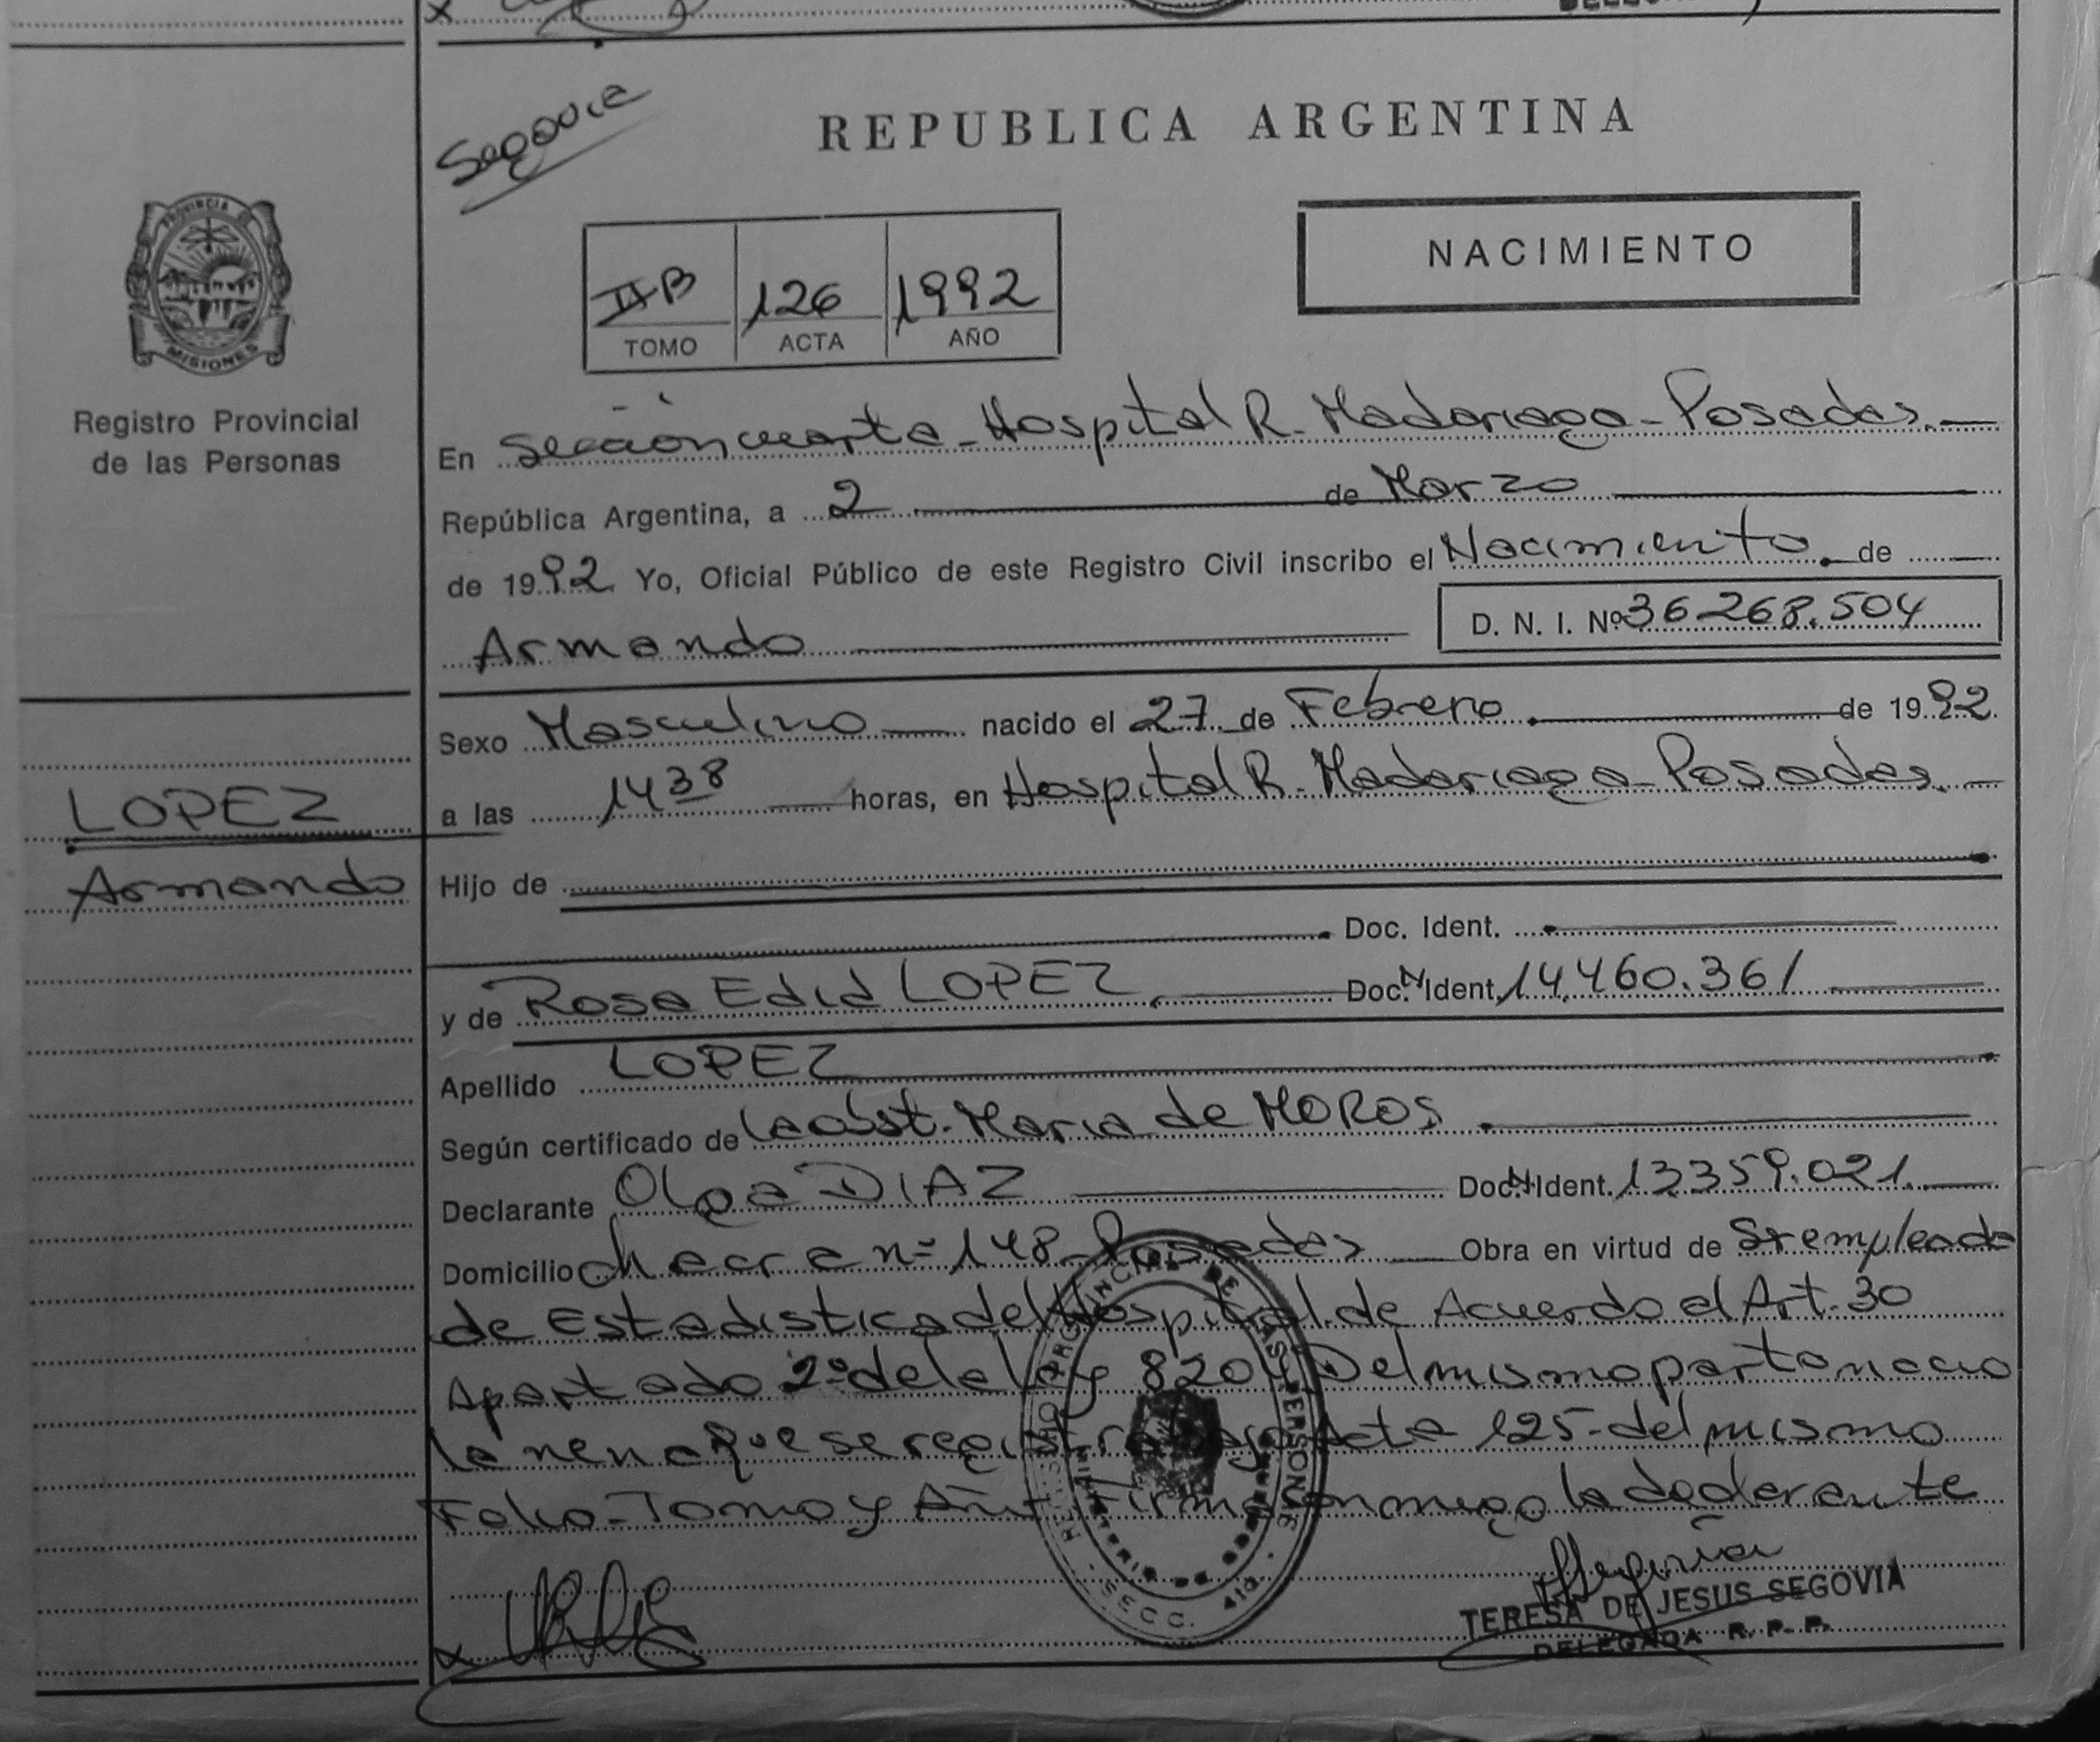 Segovia
REPUBLICA ARGENTINA
NACIMIENTO
II B 126 1992
TOMO ACTA AÑO
PROVINCIA DE
MISIONES
Registro Provincial
de las Personas
En Sección cuarta - Hospital R. Madariaga - Posadas.
República Argentina, a 2 de Marzo
de 1992 Yo, Oficial Público de este Registro Civil inscribo el Nacimiento de
Armando D. N. I. Nº 36268.504
Sexo Masculino nacido el 27 de Febrero de 1992
a las 14 38 horas, en Hospital R. Madariaga - Posadas.
LOPEZ
Armando
Hijo de
Doc. Ident.
y de Rosa Edid LOPEZ Doc. N Ident. 14.460.361
Apellido LOPEZ
Según certificado de la obst. Maria de MOROS
Declarante Olga DIAZ Doc. N Ident. 13359.021.
Domicilio chacra nº 148 - Posadas Obra en virtud de Sr empleada
de Estadistica del Hospital de Acuerdo al Art. 30
Apartado 2º de la ley 8204 Del mismo parto nacio
la nena que se registra bajo Acta 125 - del mismo
Folio - Tomo y Año Firma conmigo la declarante
REGISTRO PROVINCIAL DE LAS PERSONAS
MINISTERIO DE GOBIERNO
SECC. 4ta
TERESA DE JESUS SEGOVIA
DELEGADA R. P. P.